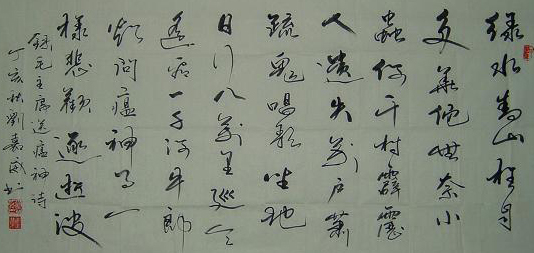 綠水青山枉自
多華佗無奈小
蟲何千村霹靂
人遺失萬戶蕭
疏鬼唱歌坐地
日行八萬里巡天
遙看一千河牛郎
欲問瘟神事一
樣悲歡逐逝波
錄毛主席送瘟神詩
丁亥秋劉嘉書